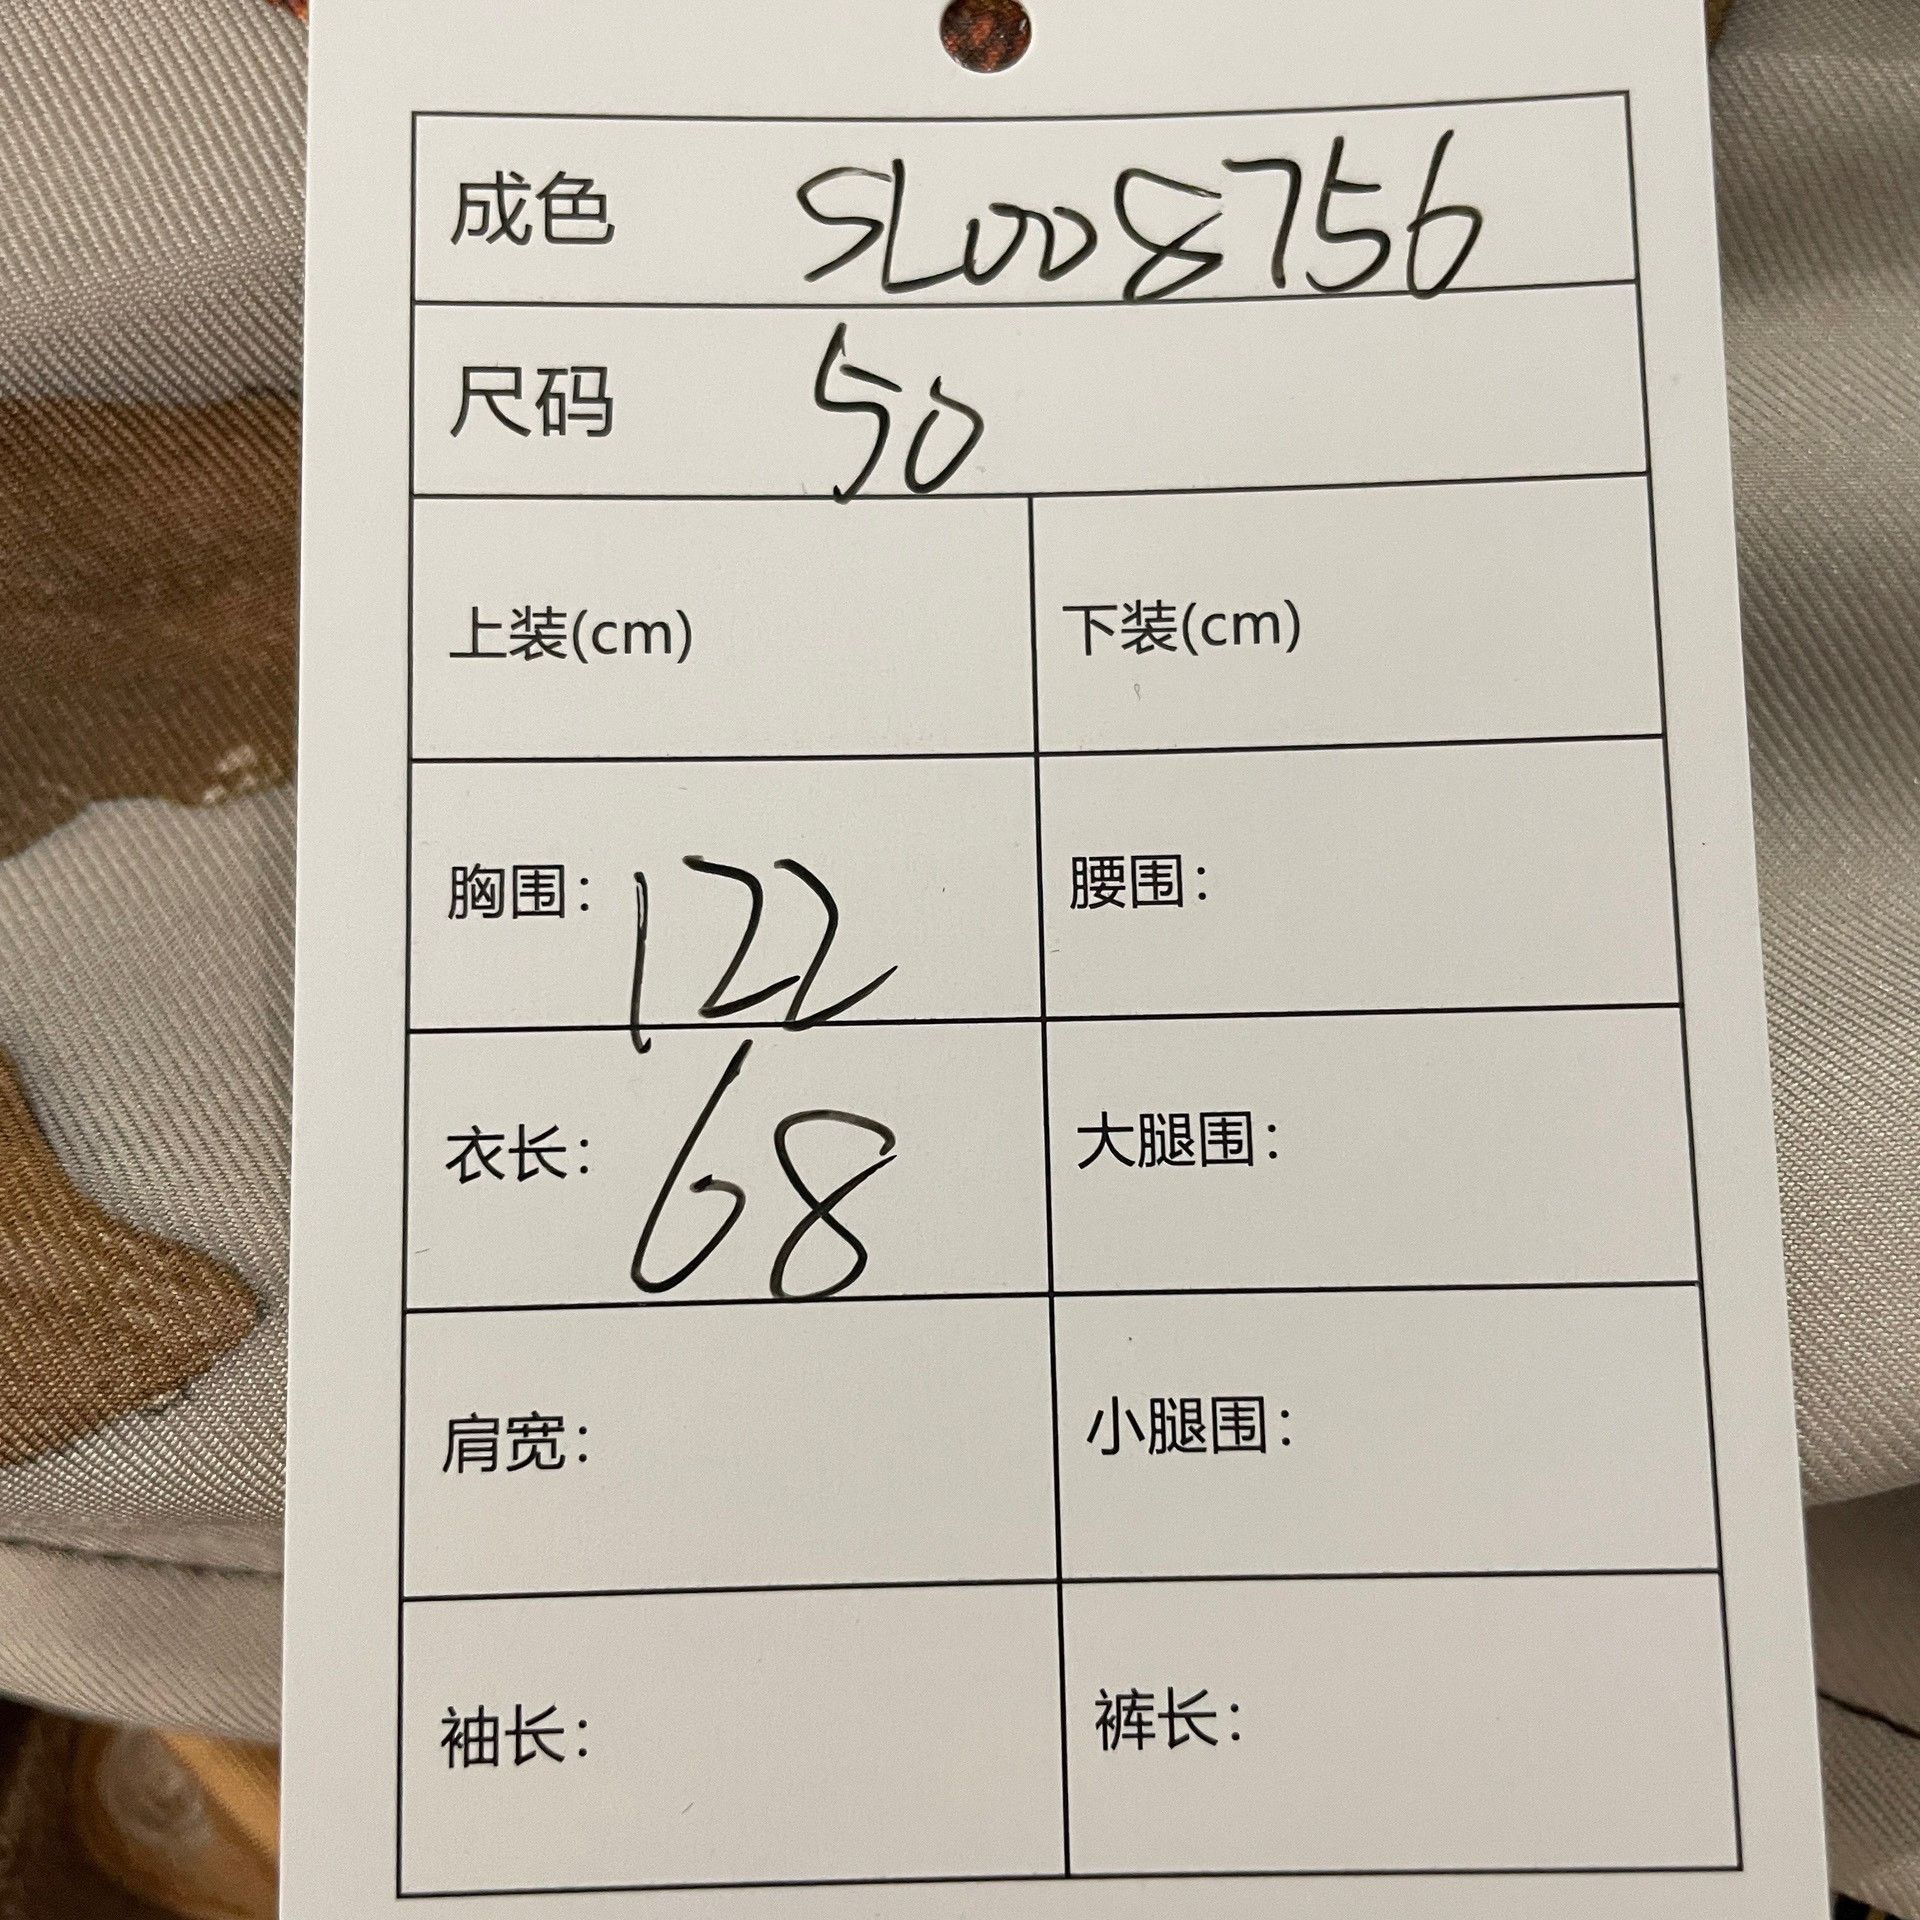 成色 SL008756
尺码 50
上装(cm) 下装(cm)
胸围: 122 腰围:
衣长: 68 大腿围:
肩宽: 小腿围:
袖长: 裤长: